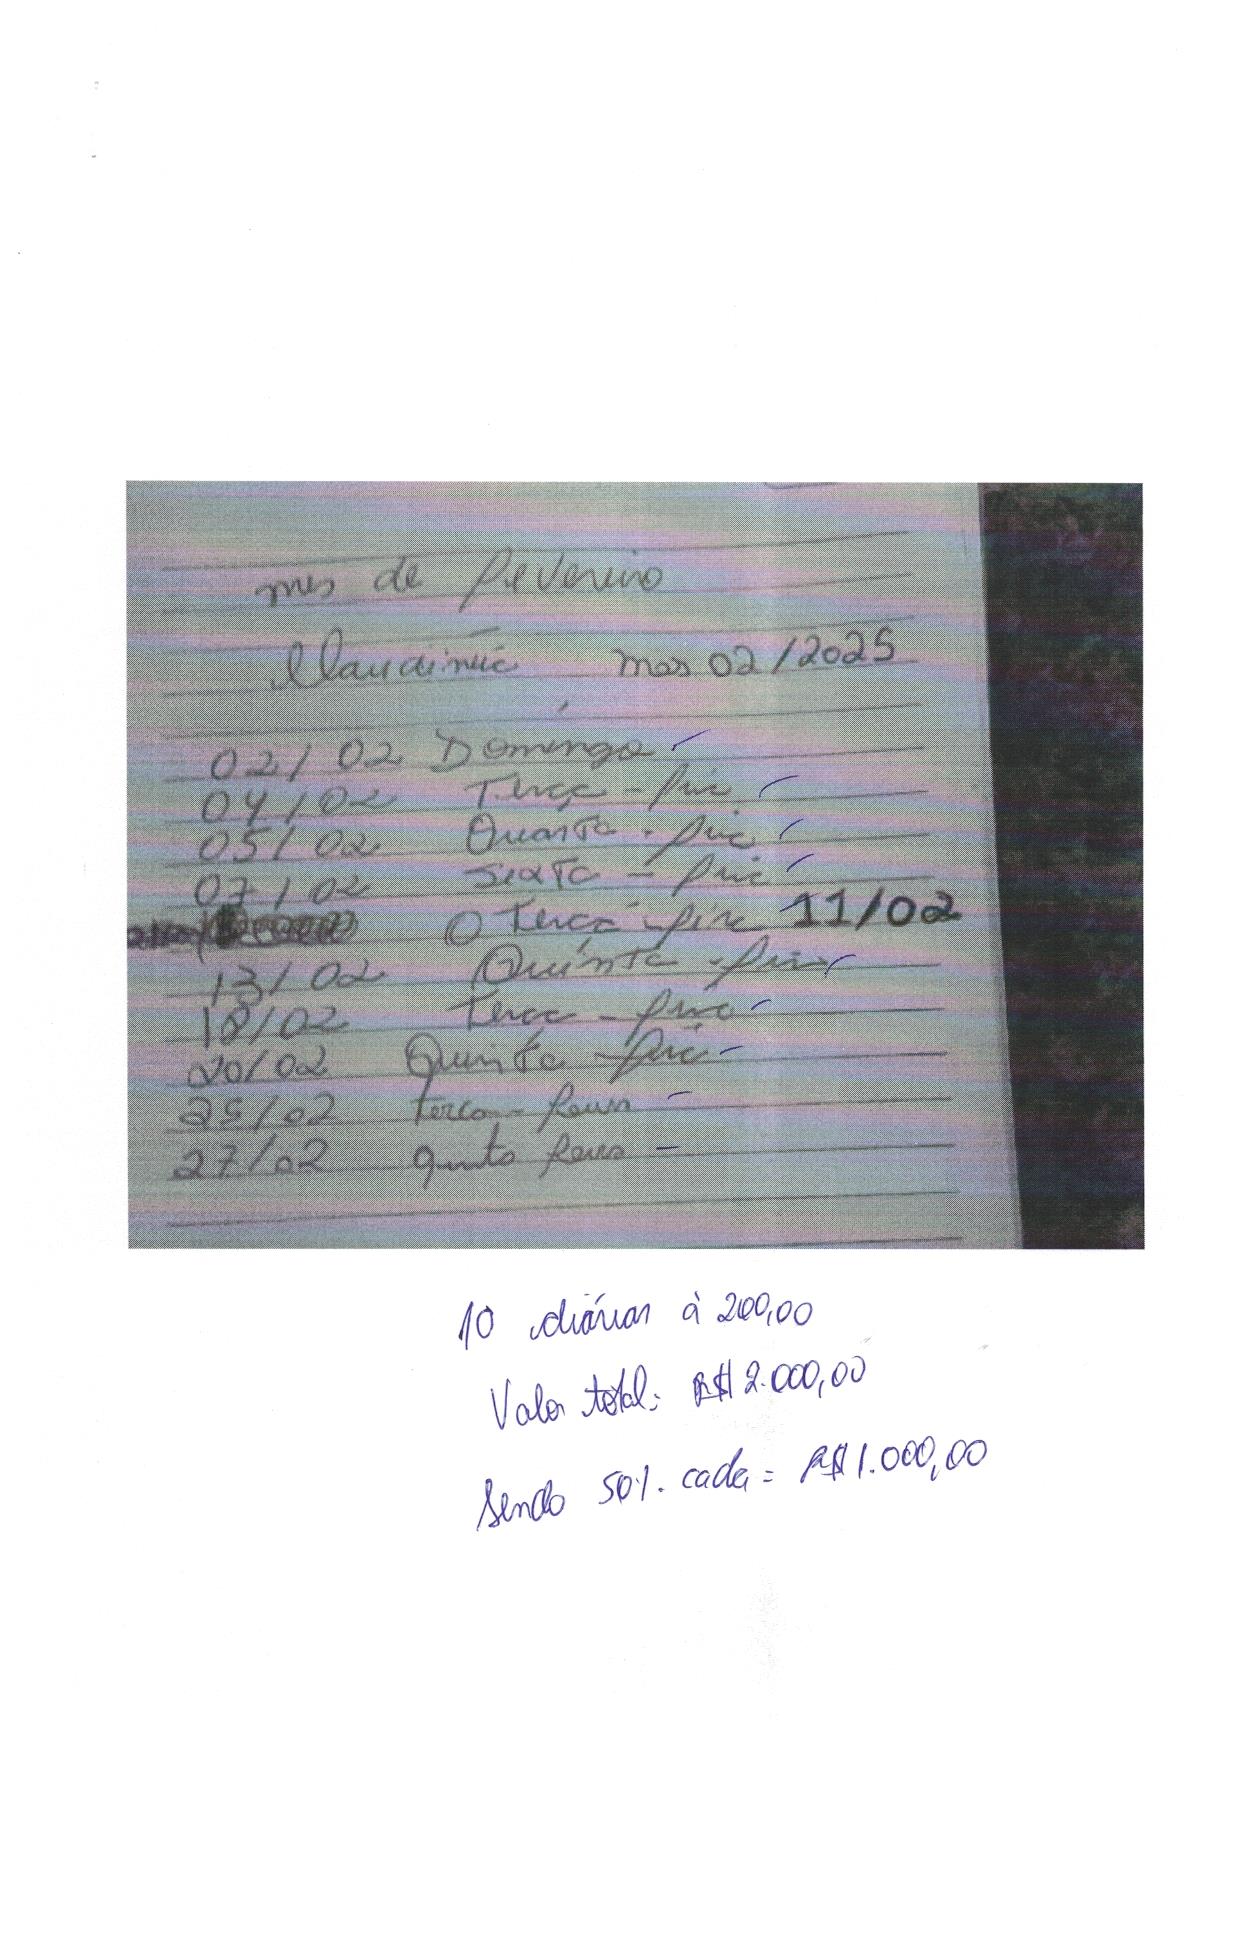 mes de fevereiro
Claudinéic mes 02/2025
02/02 Domingo
04/02 Terça - firc
05/02 Quarta - firc
07/02 Sexta - firc
Terça - firc 11/02
13/02 Quinta - firc
18/02 Terça - firc
20/02 Quinta - firc
25/02 terca - feira
27/02 quinta feira -
10 diárias à 200,00
Valor total: R$ 2.000,00
Sendo 50% cada = R$ 1.000,00